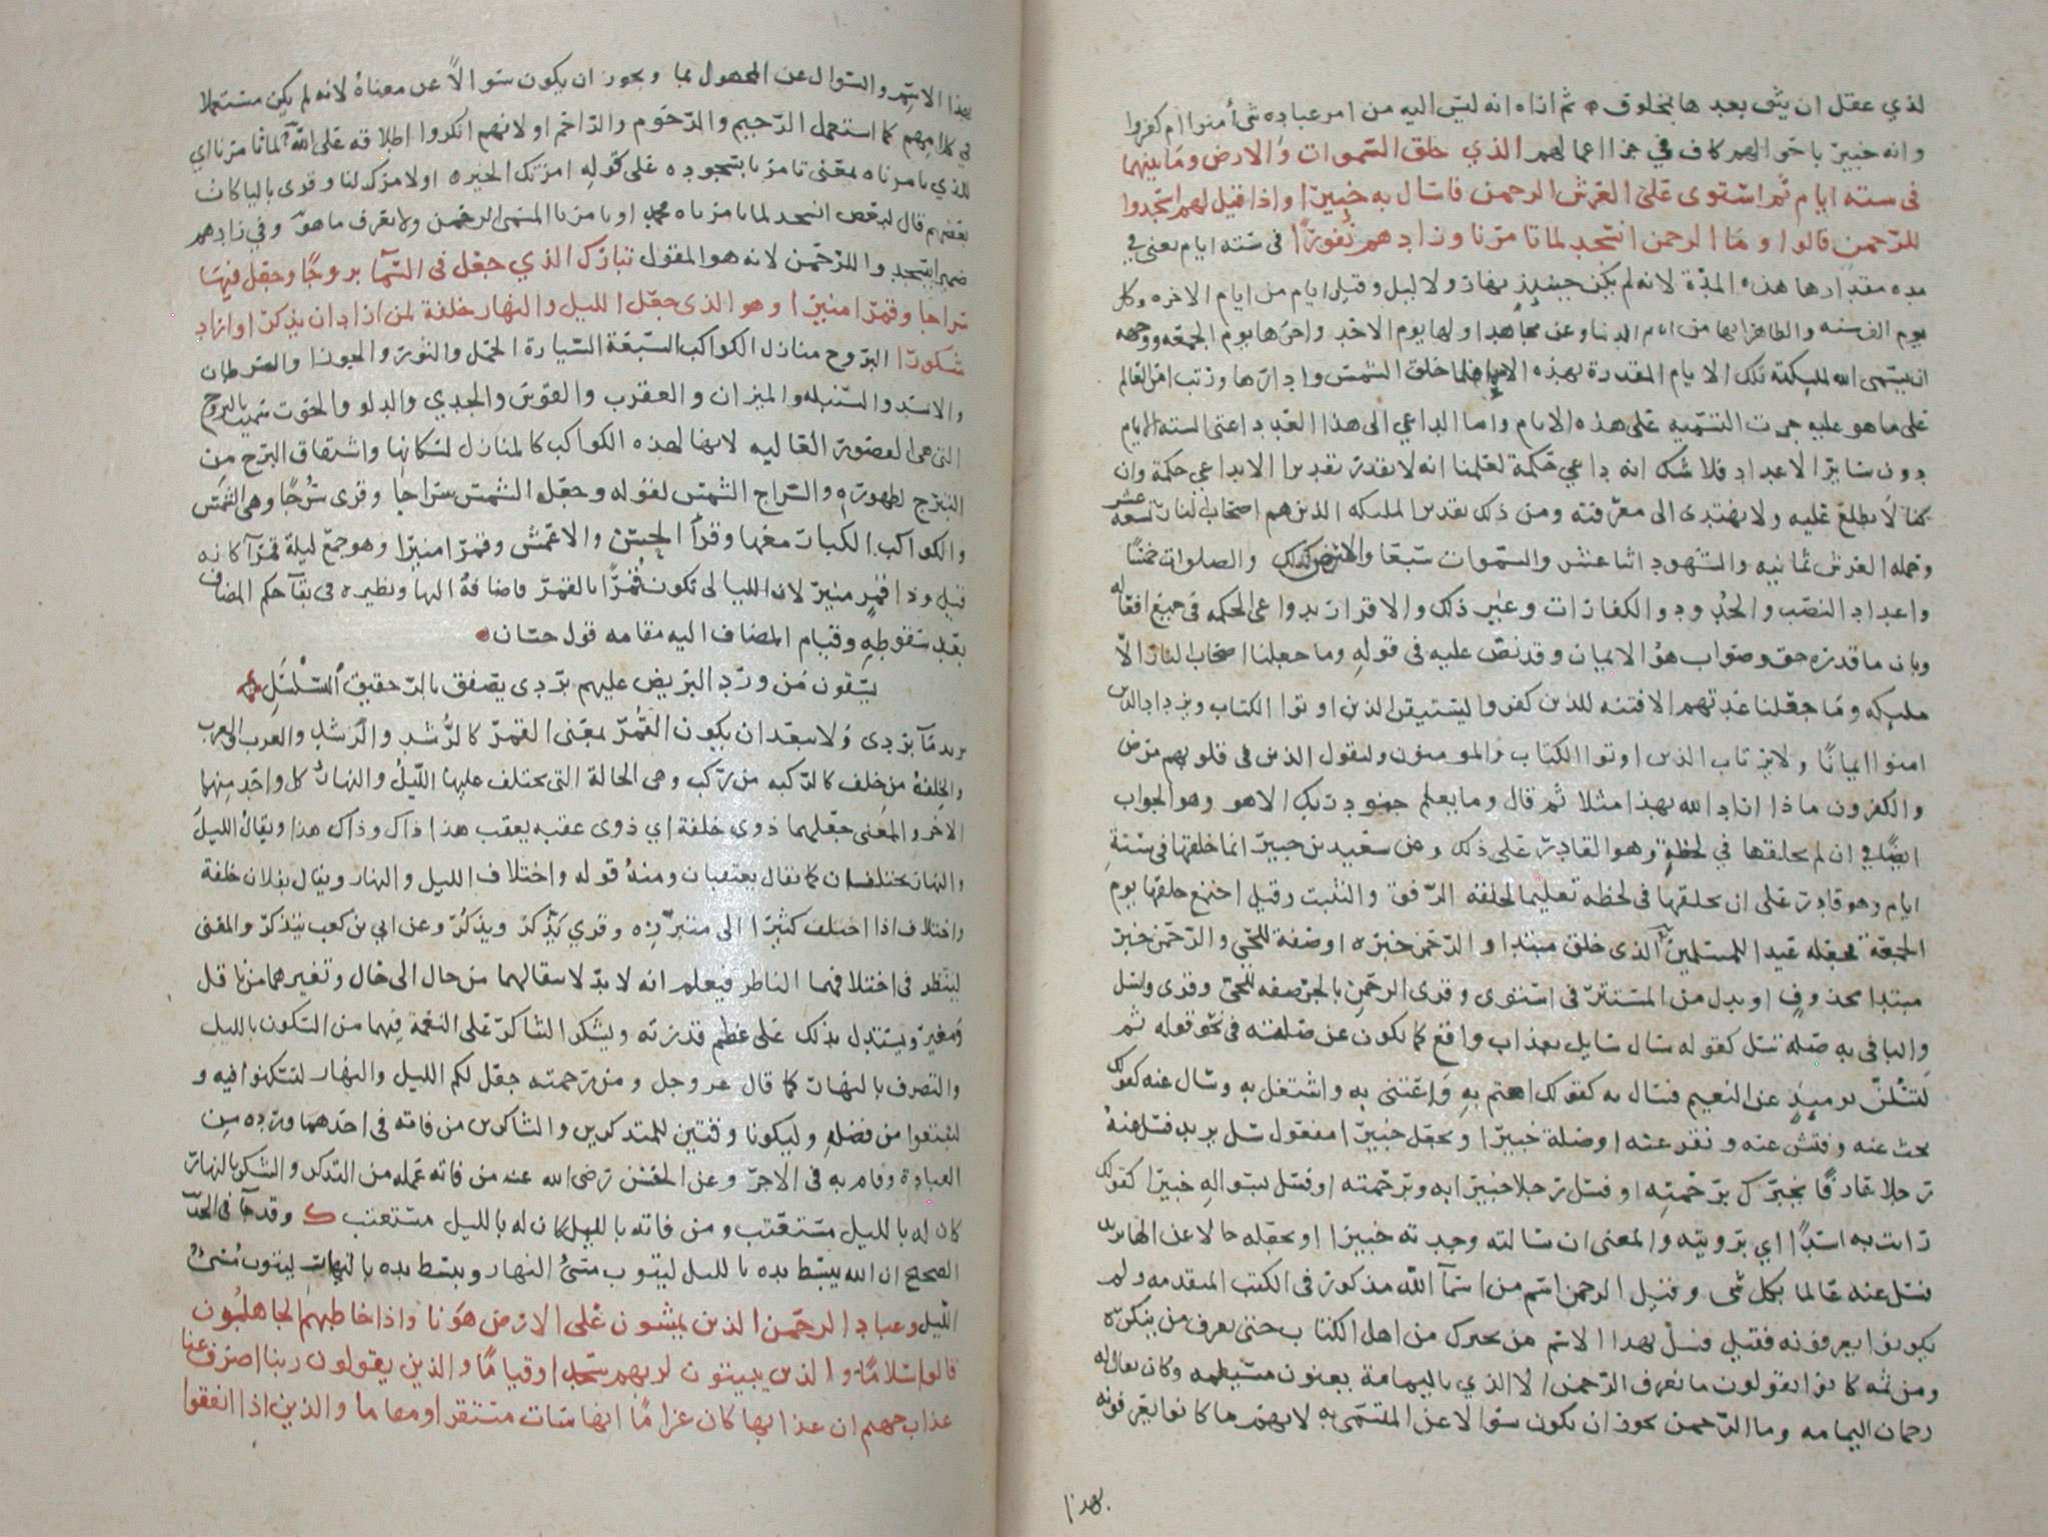 لذي عقل ان يثق بعدها بمخلوق ثم اراه انه ليس اليه من امر عباده شى أمنوا ام كفروا
وانه خبير باحوالهم كاف في جزا اعمالهم الذي خلق السموات والارض وما بينهما
فى سته ايام ثم استوى على العرش الرحمن فاسال به خبيرا واذا قيل لهم اسجدوا
للرحمن قالوا وما الرحمن انسجد لما تامرنا وزادهم نفورا فى سته ايام يعنى في
مده مقدارها هذه المدة لانه لم يكن حينيذ نهار ولا ليل وقيل ايام من ايام الاخره وكل
يوم الف سنه والظاهر انها من ايام الدنيا وعن مجاهد اولها يوم الاحد واخرها يوم الجمعه ووجهه
ان يسمى الله لمليكته تلك الايام المقدرة بهذه الاسما فلما خلق الشمس وادارها ورتب امر العالم
على ما هو عليه جرت التسميه على هذه الايام واما الداعي الى هذا العدد اعنى السته الايام
دون ساير الاعداد فلا شك انه داعي حكمة لعلمنا انه لا يقدر تقديرا الا بداعي حكمة وان
كنا لا نطلع عليه ولا نهتدى الى معرفته ومن ذلك تقدير المليكه الذين هم اصحاب النار تسعه عشر
وحمله العرش ثمانيه والشهود اثنا عشر والسموات سبعا والارض كذلك والصلوات خمسا
واعداد النصب والحدود والكفارات وغير ذلك والاقرار بدواعى الحكمه في جميع افعاله
وبان ما قدره حق وصواب هو الايمان وقد نص عليه فى قوله وما جعلنا اصحاب النار الا
مليكه وما جعلنا عدتهم الا فتنه للذين كفروا ليستيقن الذين اوتوا الكتاب ويزداد الذين
امنوا ايمانا ولا يرتاب الذين اوتوا الكتاب والمومنون وليقول الذين فى قلوبهم مرض
والكفرون ماذا اراد الله بهذا مثلا ثم قال وما يعلم جنود ربك الا هو وهو الجواب
ايضا في ان لم يخلقها في لحظة وهو القادر على ذلك وعن سعيد بن جبير انما خلقها فى ستة
ايام وهو قادر على ان يخلقها فى لحظه تعليما لخلقه الرفق والتثبت وقيل اجتمع خلقها يوم
الجمعة فجعله عيدا للمسلمين الذى خلق مبتدا والرحمن خبره او صفة للحي والرحمن خبر
مبتدا محذوف او بدل من المستتر فى استوى وقرى الرحمن بالجر صفه للحي وقرى وسل
والبا فى به صله سل كقوله سال سايل بعذاب واقع كما يكون عن صلته فى نحو قوله ثم
لتسئلن يوميذ عن النعيم فسال به كقولك اهتم به واعتنى به واشتغل به وسال عنه كقولك
بحث عنه وفتش عنه ونقر عنه او صلة خبيرا ويجعل خبيرا مفعول سل يريد فسل عنه
رجلا عارفا يخبرك برحمته او فسل رجلا خبيرا به وبرحمته او فسل بسواله خبيرا كقولك
رايت به اسدا اي برويته والمعنى ان سالته وجدته خبيرا او يجعله حالا عن الها يريد
فسل عنه عالما بكل شى وقيل الرحمن اسم من اسمآ الله مذكور فى الكتب المتقدمه ولم
يكونوا يعرفونه فقيل فسل بهذا الاسم من يخبرك من اهل الكتاب حتى يعرف من ينكره
ومن ثمه كانوا يقولون ما نعرف الرحمن الا الذي باليمامة يعنون مسيلمه وكان يقال له
رحمان اليمامه وما الرحمن يجوز ان يكون سوالا عن المسمى به لانهم ما كانوا يعرفونه
بهذا
بهذا الاسم والسوال عن المجهول بما ويجوز ان يكون سوالا عن معناه لانه لم يكن مستعملا
في كلامهم كما استعمل الرحيم والرحوم والراحم او لانهم انكروا اطلاقه على الله لما تامرنا اي
للذي تامرناه بمعنى تامرنا بسجوده على قوله امرتك الخير او لامرك لنا وقرى باليا كان
بعضهم قال لبعض انسجد لما يامرناه محمد او يامرنا المسمى الرحمن ولا نعرف ما هو وفي زادهم
ضمير اسجدوا للرحمن لانه هو المقول تبارك الذي جعل فى السمآ بروجا وجعل فيها
سراجا وقمرا منيرا وهو الذى جعل الليل والنهار خلفة لمن اراد ان يذكر او اراد
شكورا البروج منازل الكواكب السبعة السيارة الحمل والثور والجوزا والسرطان
والاسد والسنبله والميزان والعقرب والقوس والجدي والدلو والحوت سميت بالبروج
التى هى القصور العاليه لانها لهذه الكواكب كالمنازل لسكانها واشتقاق البرج من
التبرج لظهوره والسراج الشمس لقوله وجعل الشمس سراجا وقرى سرجا وهى الشمس
والكواكب الكبار معها وقرأ الحسن والاعمش وقمرا منيرا وهو جمع ليلة قمرآ كانه
قيل وذا قمر منير لان الليالى تكون قمرا بالقمر فاضافه اليها ونظيره فى بقآ حكم المضاف
بعد سقوطه وقيام المضاف اليه مقامه قول حسان
يسقون من ورد البريص عليهم بردى يصفق بالرحيق السلسل
يريد مآ بردى ولا يبعد ان يكون القمر بمعنى القمر كالرشد والرشد والعرب والعرب
والخلفة من خلف كالركبه من ركب وهى الحالة التى يختلف عليها الليل والنهار كل واحد منهما
الاخر والمعنى جعلهما ذوي خلفة اي ذوى عقبه يعقب هذا ذاك وذاك هذا ويقال الليل
والنهار يختلفان كما يقال يعتقبان ومنه قوله واختلاف الليل والنهار ويقال بفلان خلفة
واختلاف اذا اختلف كثيرا الى متبرزه وقري يذكر ويذكر وعن ابي بن كعب يتذكر والمعنى
لينظر فى اختلافهما الناظر فيعلم انه لا بد لانتقالهما من حال الى حال وتغيرهما من ناقل
ومغير ويستدل بذلك على عظم قدرته ويشكر الشاكر على النعمة فيهما من السكون بالليل
والتصرف بالنهار كما قال عز وجل ومن رحمته جعل لكم الليل والنهار لتسكنوا فيه و
لتبتغوا من فضله وليكونا وقتين للمتذكرين والشاكرين من فاته فى احدهما ورده من
العبادة قام به فى الاخر وعن الحسن رضى الله عنه من فاته عمله من التذكر والشكر بالنهار
كان له بالليل مستعتب ومن فاته بالليل كان له بالليل مستعتب وقد جآ فى الحديث
الصحيح ان الله يبسط يده بالليل ليتوب مسئ النهار ويبسط يده بالنهار ليتوب مسئ
الليل وعباد الرحمن الذين يمشون على الارض هونا واذا خاطبهم الجاهلون
قالوا سلاما والذين يبيتون لربهم سجدا وقياما والذين يقولون ربنا اصرف عنا
عذاب جهنم ان عذابها كان غراما انها سات مستقرا ومقاما والذين اذا انفقوا